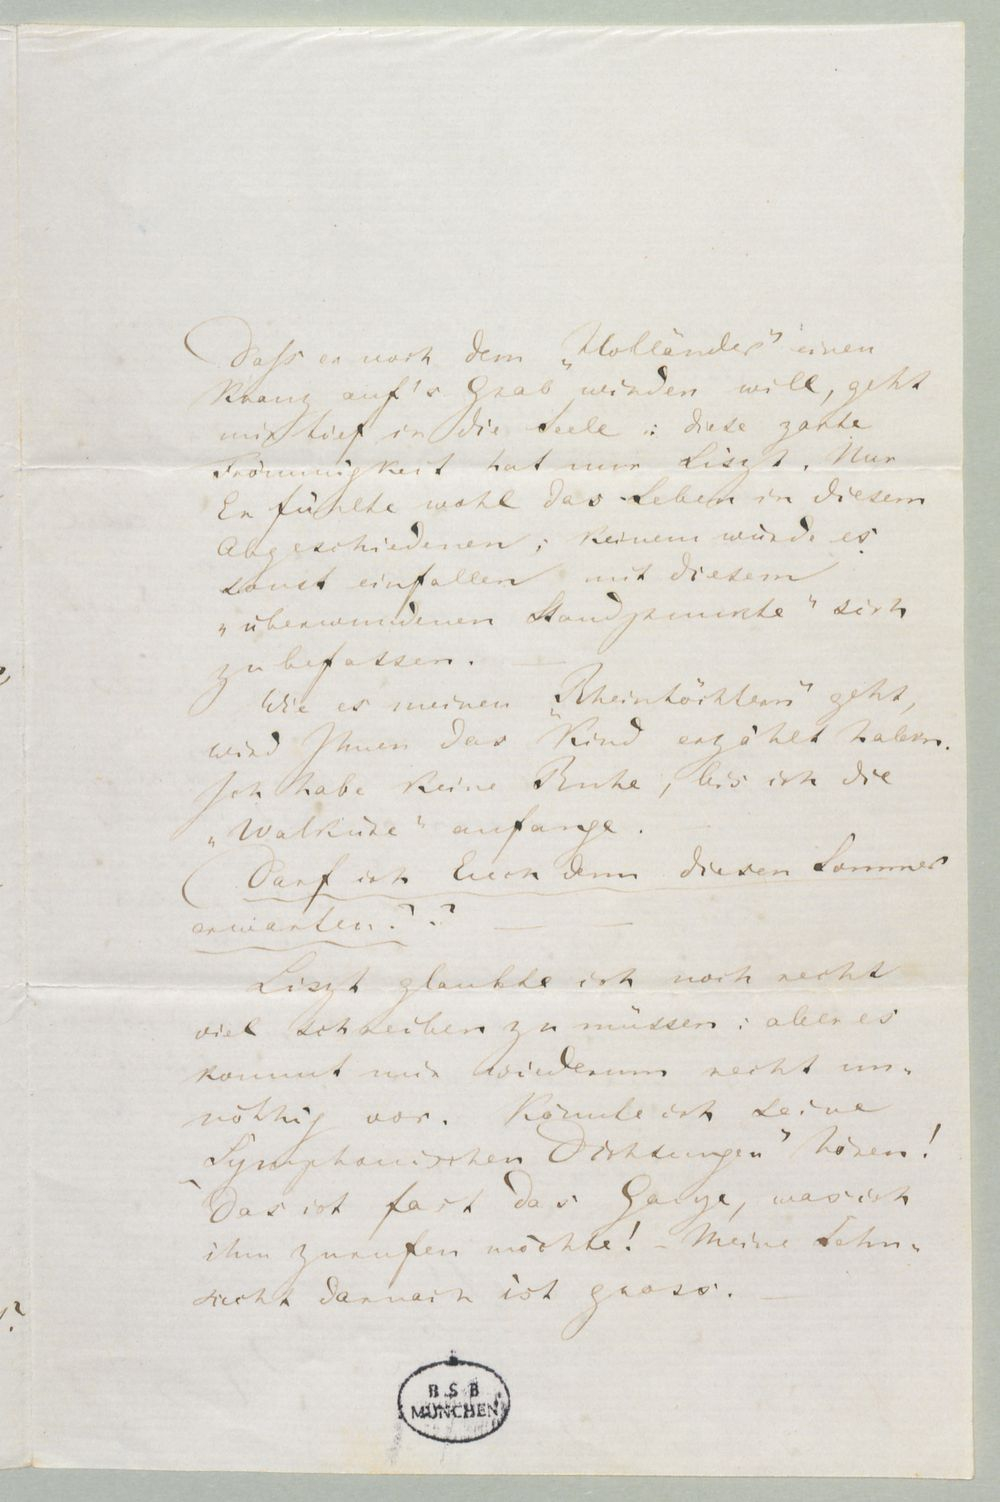 Dass er noch dem „Holländer" einen
Kranz auf's Grab winden will, geht
mir tief in die Seele: diese zarte
Frömmigkeit hat nur Liszt. Nur
Er fühlte wohl das Leben in diesem
Abgeschiedenen; keinem würde es
sonst einfallen mit diesem
„überwundenen Standpunkte" sich
zu befassen. —
Wie es meinen „Rheintöchtern" geht,
wird Ihnen das Kind erzählt haben.
Ich habe keine Ruhe, bis ich die
„Walküre" anfange. —
Darf ich Euch denn diesen Sommer
erwarten?? — —
Liszt glaubte ich noch recht
viel schreiben zu müssen: aber es
kommt mir wiederum recht un-
nöthig vor. Könnte ich seine
„Symphonischen Dichtungen" hören!
Das ist fast das Ganze, was ich
ihm zurufen möchte! – Meine Sehn-
sucht darnach ist gross. —
BSB
MÜNCHEN